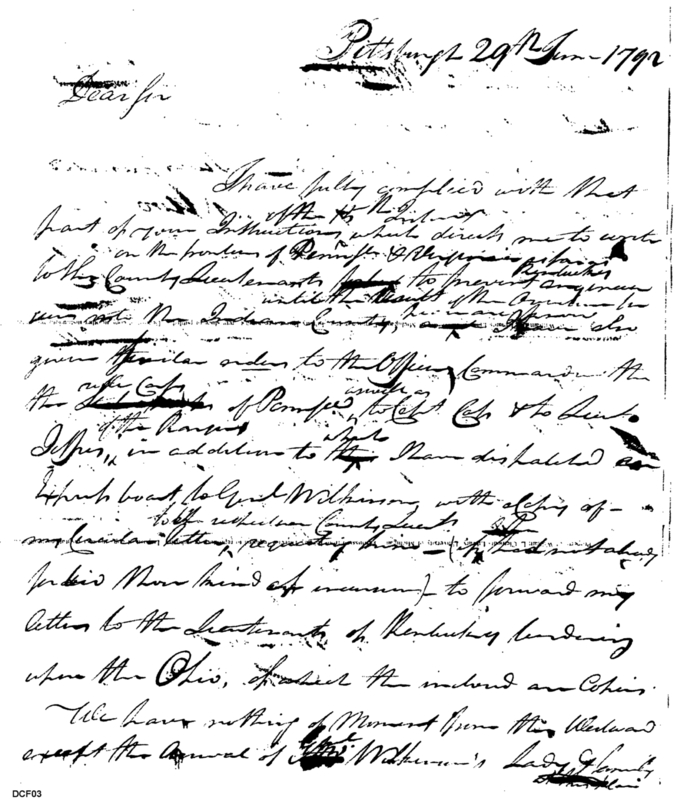 Pittsburgh 29th June 1792
Dear Sir
I have fully complied with that
of the
part of your Instructions, which directs me to write
on the frontiers of Pennsa & Virginia
to the County Lieutenants to prevent
until the Result of the
the Indian Country,
given similar orders to the Officer Commanding the
rifle Corps
the of Pennsa to Capt Cass & to Lieut
of the Rangers what
Jeffers, in addition to I have dispatched an
Express boat to Genl Wilkinson with Copies of
to the County Lieuts
my Circular letter, requesting him - (if had not already
forbid those kind of incursions) - to forward my
letters to the Lieutenants of Kentucky bordering
upon the Ohio, of which the inclosed are Copies.
We have nothing of Moment from the Westward
Genl
except the arrival of Wilkinson's Lady & family
DCF03